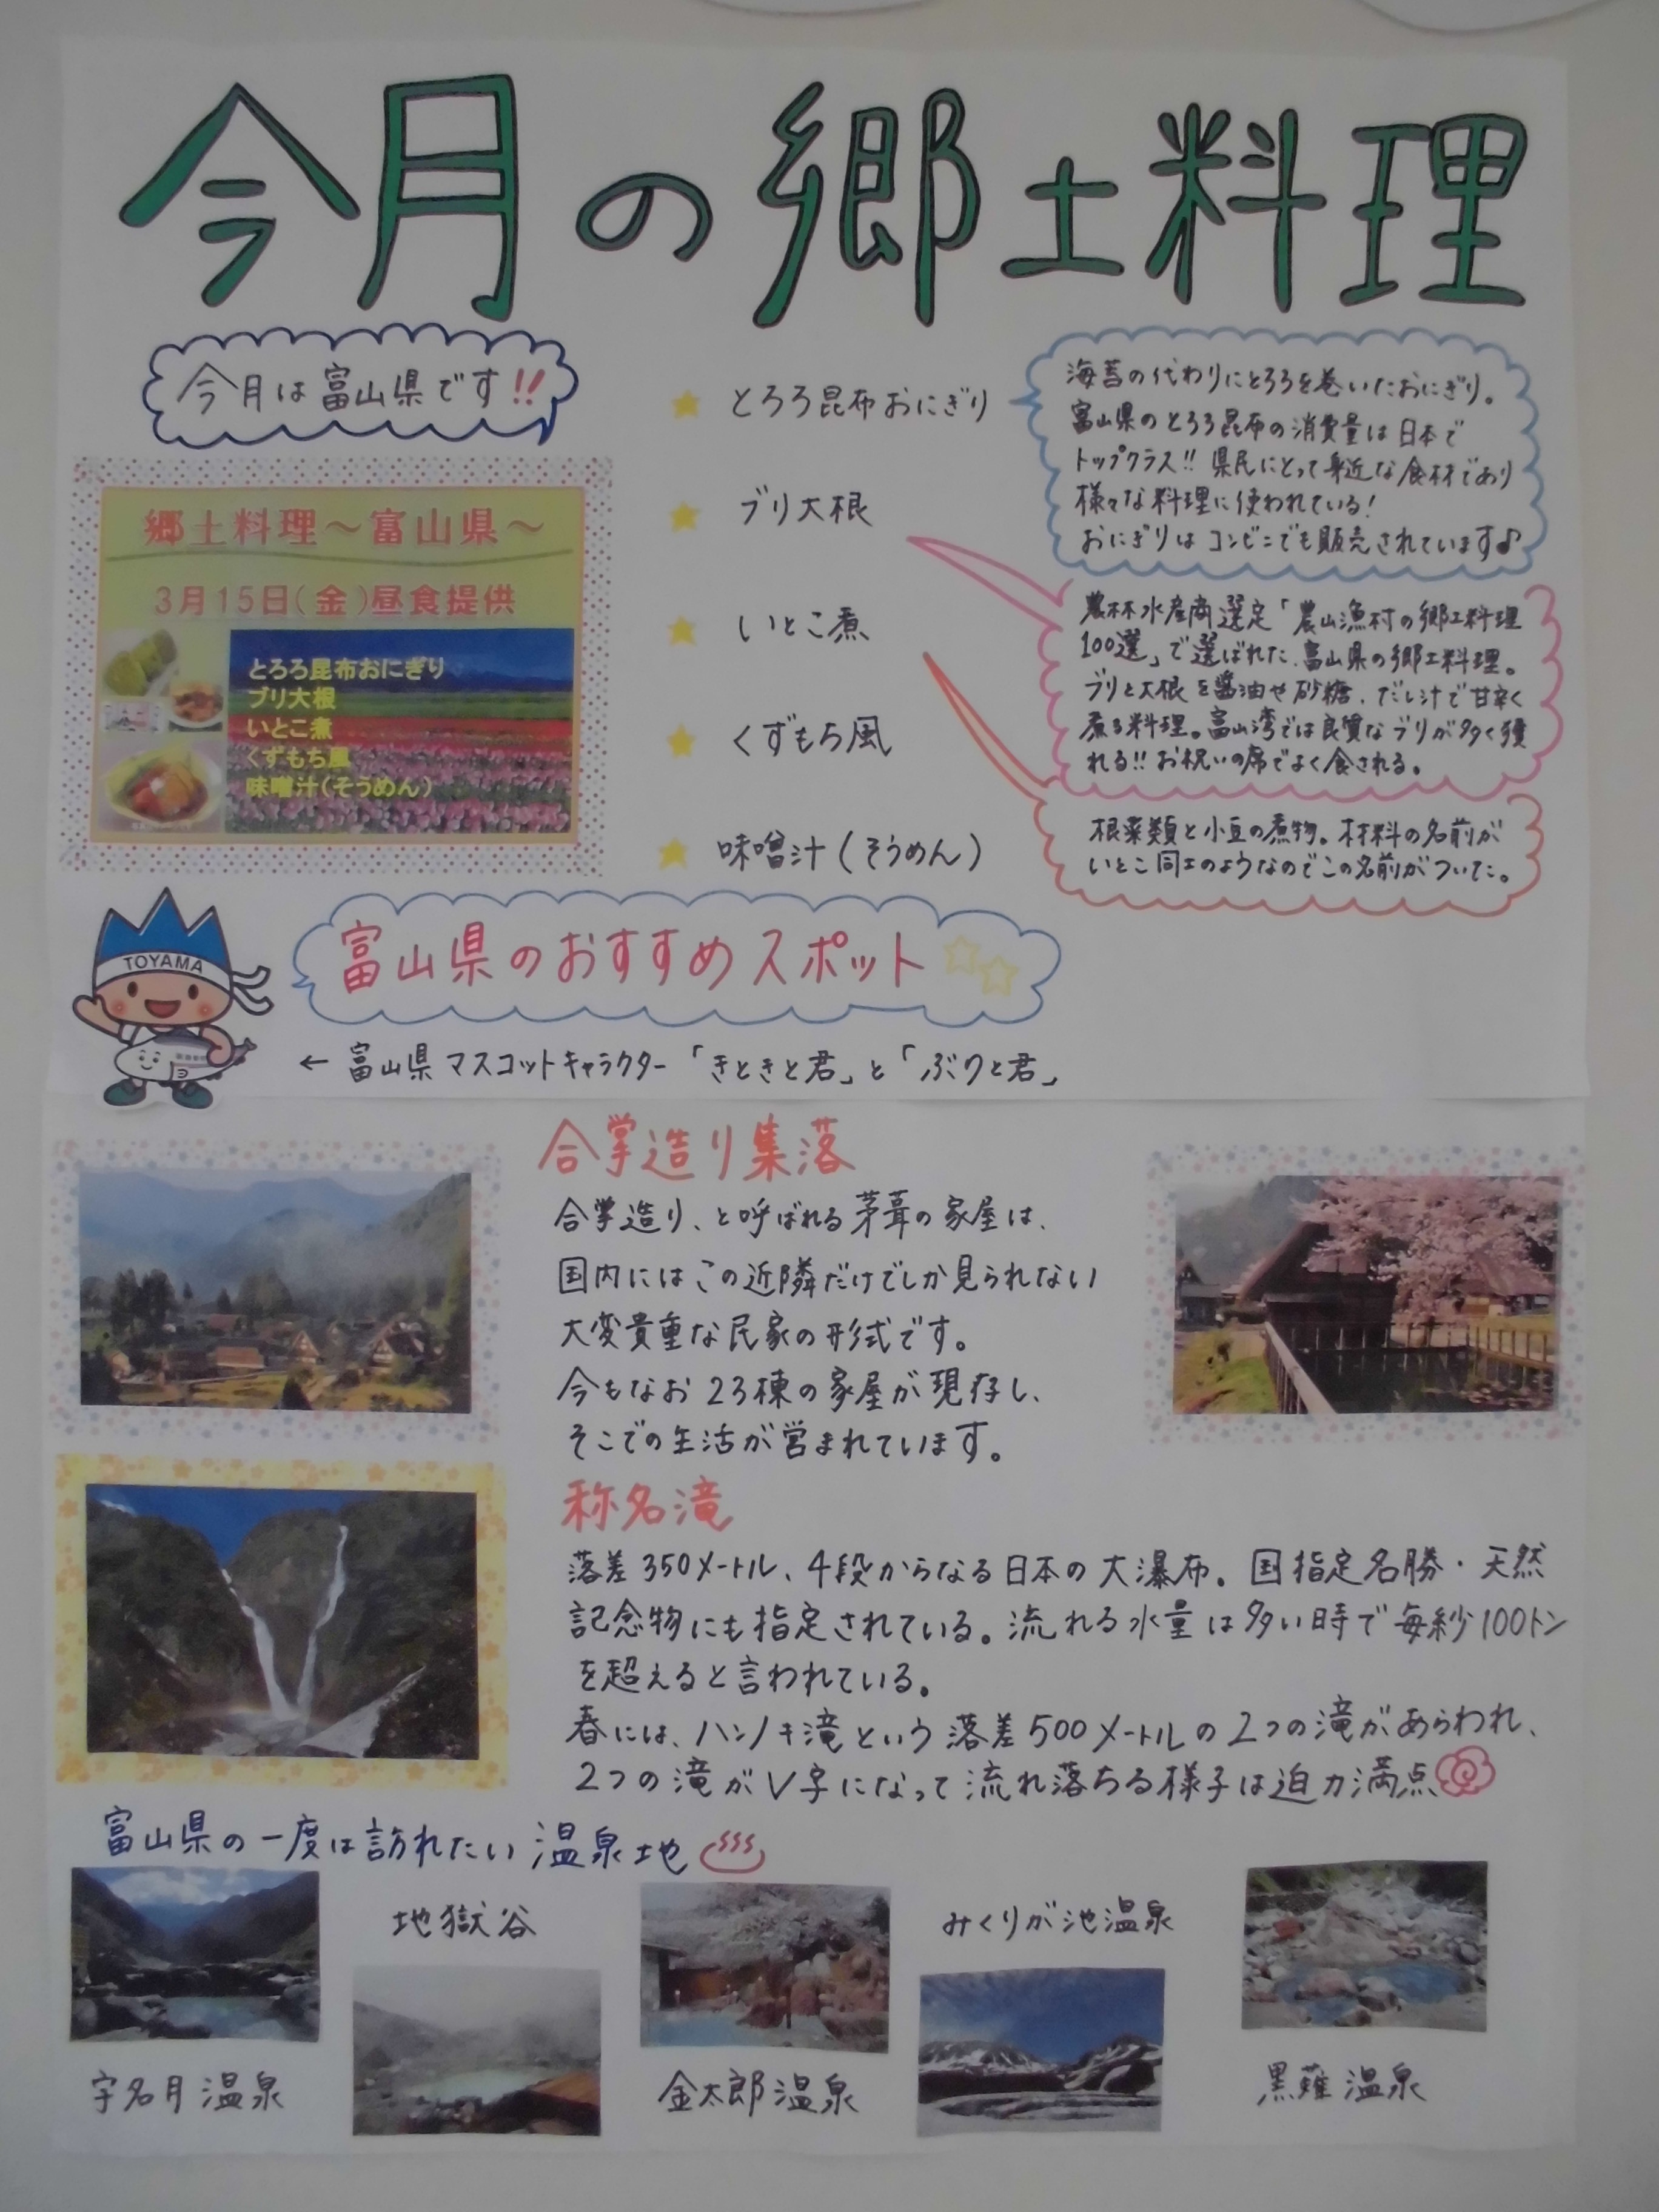 今月の郷土料理
今月は富山県です!!
郷土料理～富山県～
3月15日(金)昼食提供
とろろ昆布おにぎり
ブリ大根
いとこ煮
くずもち風
味噌汁(そうめん)
★ とろろ昆布おにぎり
★ ブリ大根
★ いとこ煮
★ くずもち風
★ 味噌汁(そうめん)
海苔の代わりにとろろを巻いたおにぎり。
富山県のとろろ昆布の消費量は日本で
トップクラス!! 県民にとって身近な食材であり
様々な料理に使われている!
おにぎりはコンビニでも販売されています♪
農林水産商選定「農山漁村の郷土料理
100選」で選ばれた、富山県の郷土料理。
ブリと大根を醤油や砂糖、だし汁で甘辛く
煮る料理。富山湾では良質なブリが多く獲
れる!! お祝いの席でよく食される。
根菜類と小豆の煮物。材料の名前が
いとこ同士のようなのでこの名前がついた。
TOYAMA
富山県のおすすめスポット
← 富山県マスコットキャラクター「きときと君」と「ぶりと君」
合掌造り集落
合掌造り、と呼ばれる茅葺の家屋は、
国内にはこの近隣だけでしか見られない
大変貴重な民家の形式です。
今もなお23棟の家屋が現存し、
そこでの生活が営まれています。
称名滝
落差350メートル、4段からなる日本の大瀑布。国指定名勝・天然
記念物にも指定されている。流れる水量は多い時で毎秒100トン
を超えると言われている。
春には、ハンノキ滝という落差500メートルの2つの滝があらわれ、
2つの滝がV字になって流れ落ちる様子は迫力満点
富山県の一度は訪れたい温泉地
地獄谷
みくりが池温泉
宇名月温泉
金太郎温泉
黒薙温泉